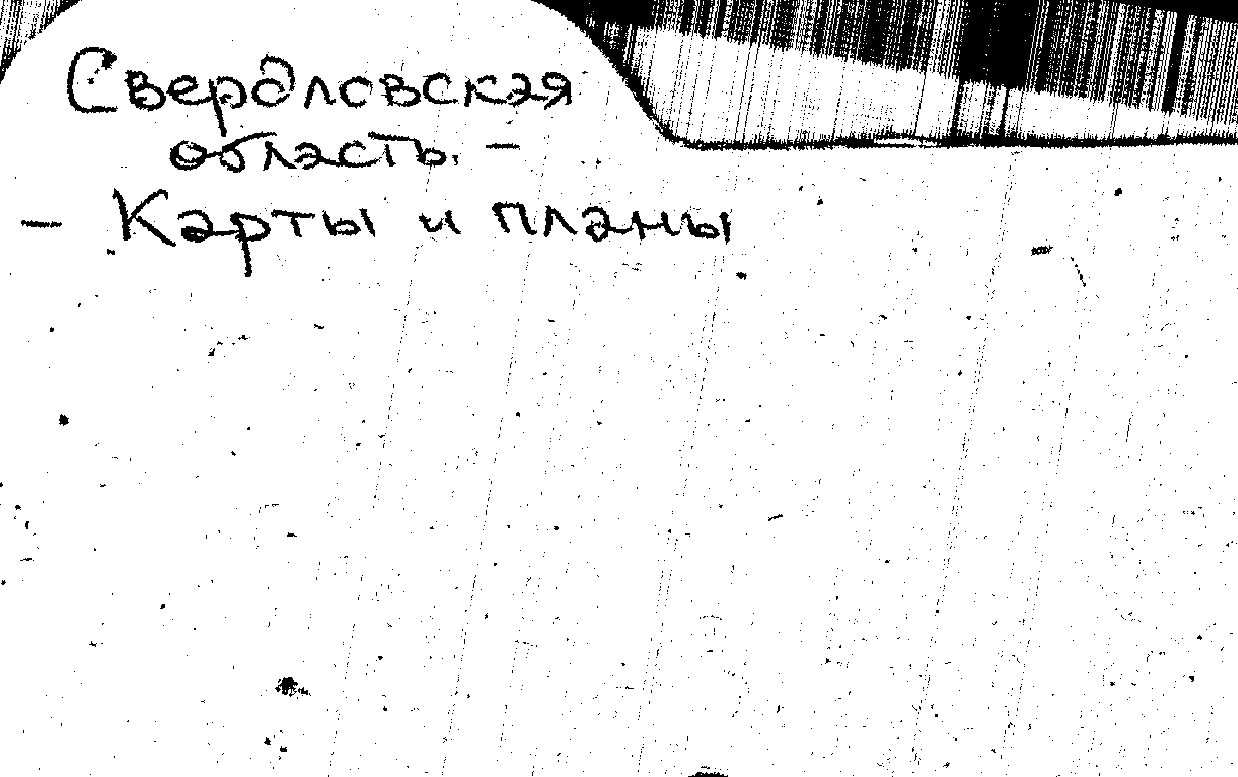 Свердловская
область. –
– Карты и планы